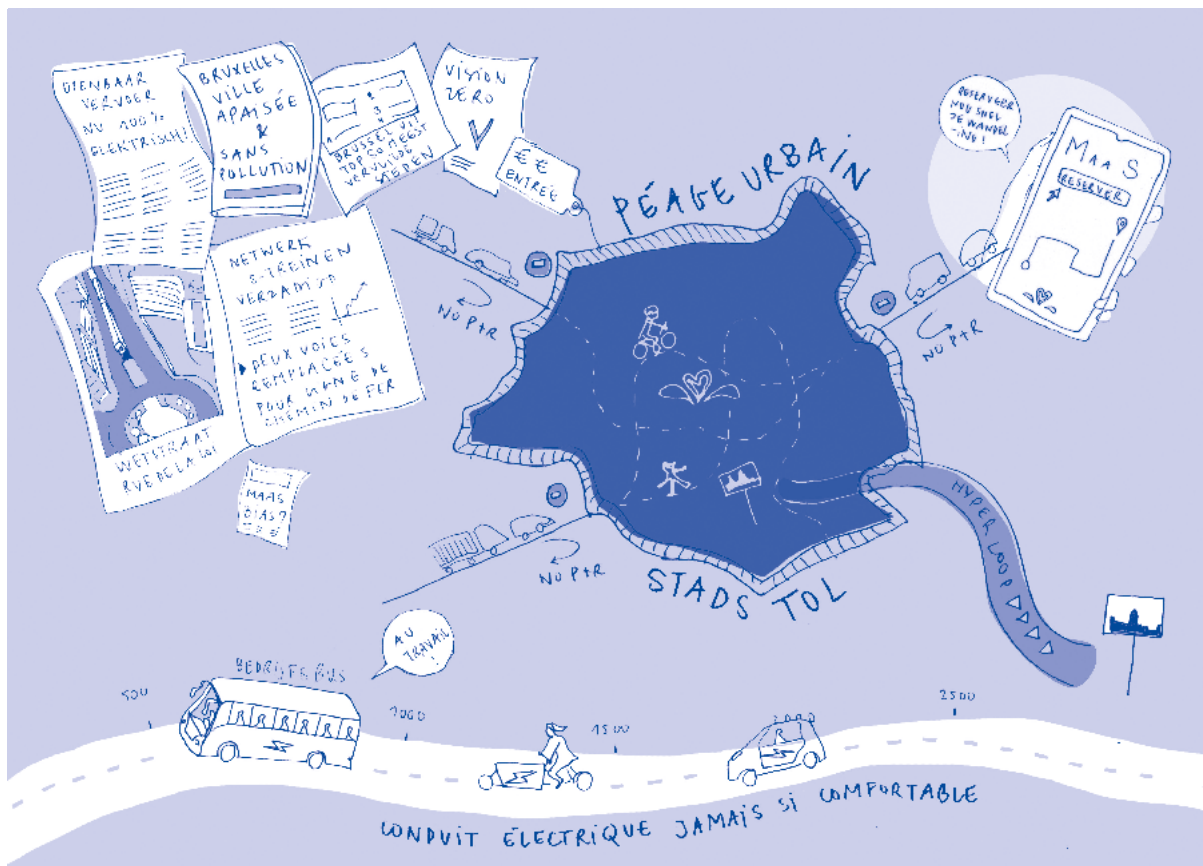 OPENBAAR
VERVOER
NU 100%
ELEKTRISCH!
BRUXELLES
VILLE
APAISÉE
&
SANS
POLLUTION
BRUSSEL UIT
TOP 50 MEEST
VERVUILDE
STEDEN
VISION
ZERO
€€
ENTRÉE
PÉAGE URBAIN
RESERVEER
NOU SNEL
JE WANDEL
-ING!
MAAS
RESERVER
NETWERK
S-TREINEN
VERZADIGD
DEUX VOIES
REMPLACÉES
POUR LIGNE DE
CHEMIN DE FER
WETSTRAAT
RUE DE LA LOI
MAAS
BIAS?
NO P+R
NO P+R
NO P+R
STADS TOL
HYPERLOOP
AU
TRAVAIL
!
BEDRIJFSBUS
500
1000
1500
2000
2500
CONDUIT ÉLECTRIQUE JAMAIS SI COMFORTABLE